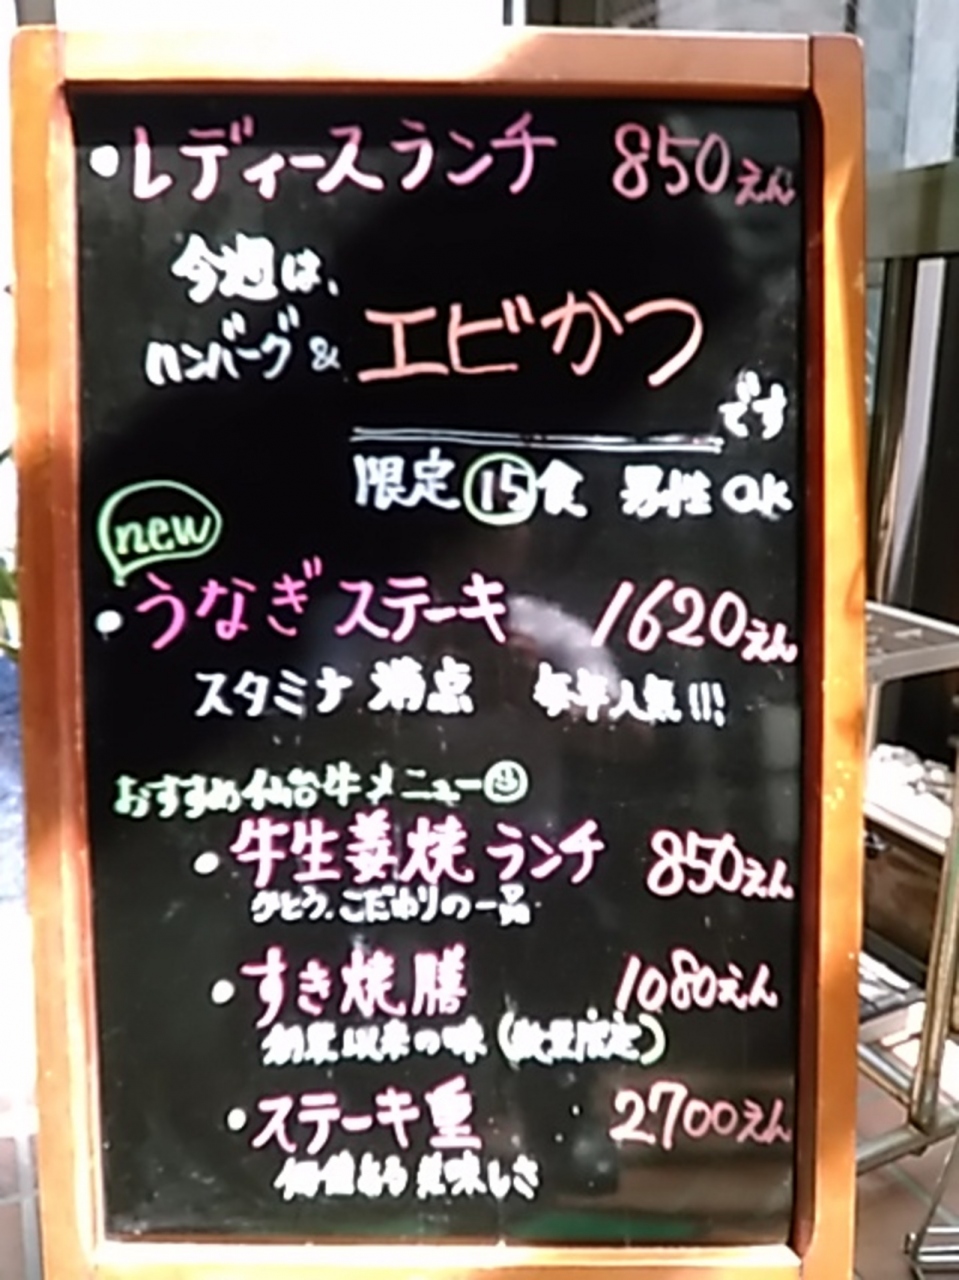 ・レディースランチ 850えん
今週は、
ハンバーグ & エビかつ
です
限定 15食 男性 OK
new
・うなぎステーキ 1620えん
スタミナ 満点 毎年人気!!!
おすすめ仙台牛メニュー
・牛生姜焼ランチ 850えん
ひとつ、こだわりの一品
・すき焼膳 1080えん
創業以来の味 (数量限定)
・ステーキ重 2700えん
価値ある美味しさ